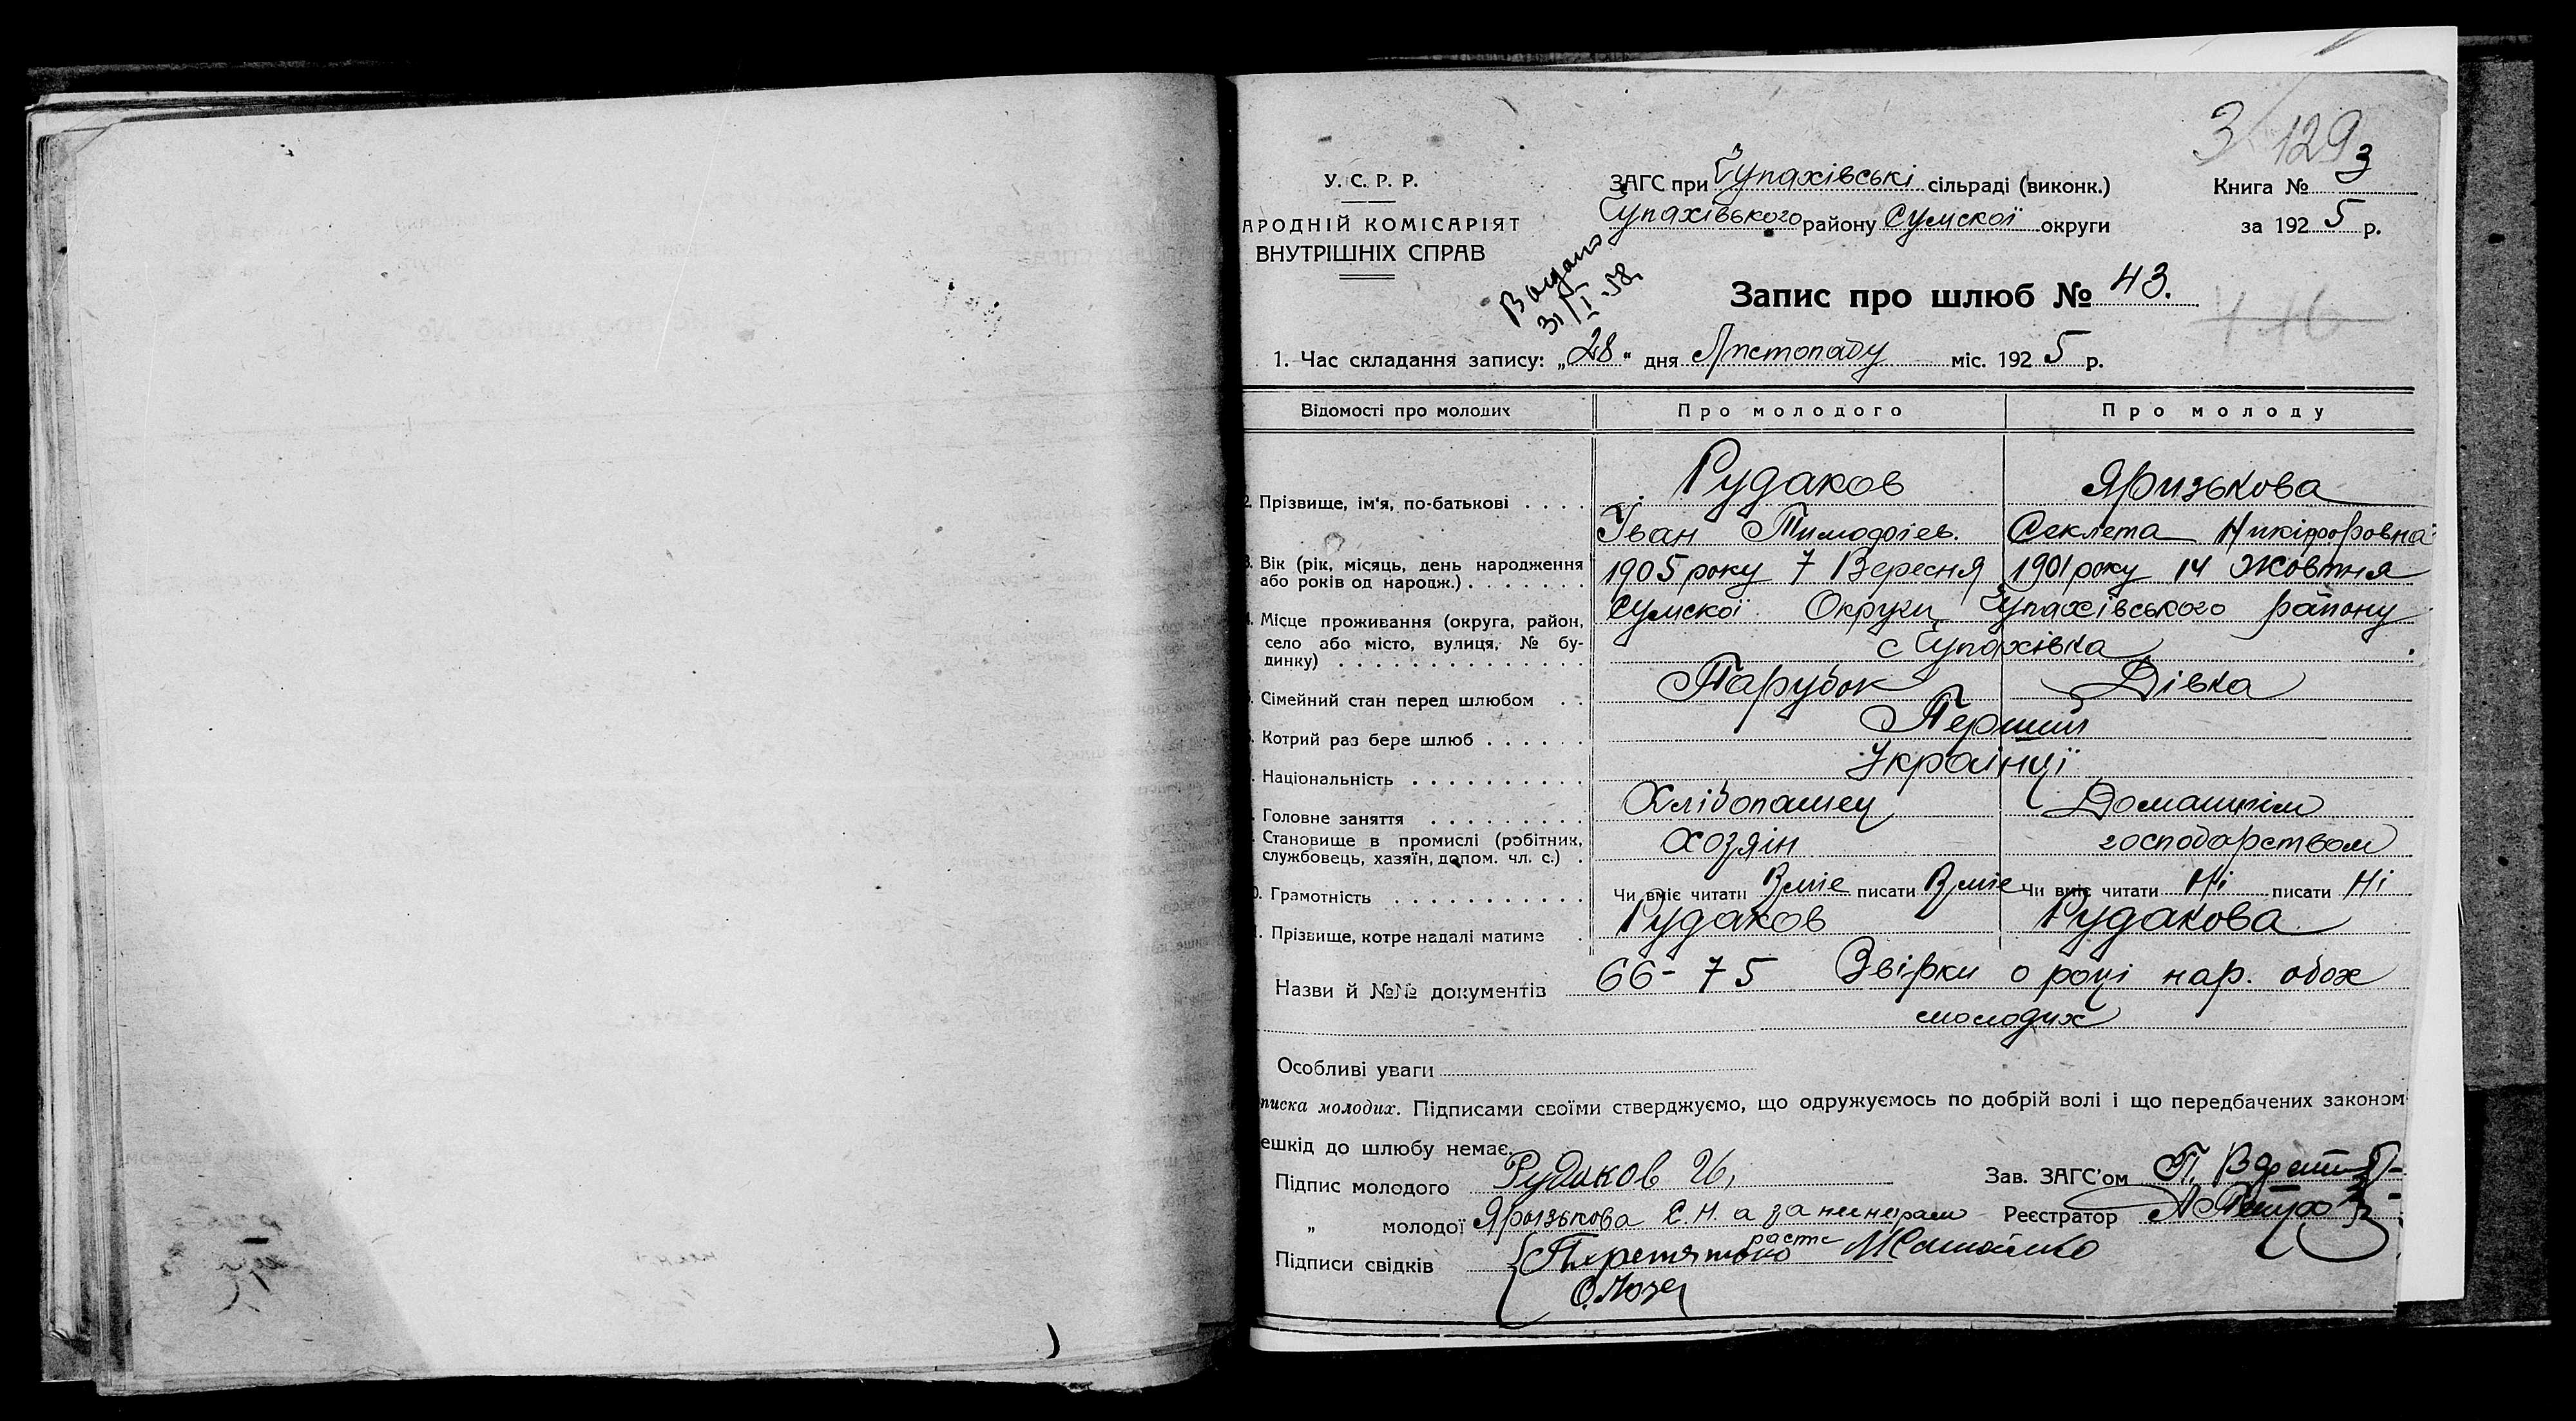 3 129
У. С. Р. Р.
АРОДНІЙ КОМІСАРІЯТ
ВНУТРІШНІХ СПРАВ
ЗАГС при Чупахівські сільраді (виконк.)
Чупахівського району Сумскої округи
Книга № 3
за 1925 р.
Видано
31/I 58.
Запис про шлюб № 43.
1. Час складання запису: „28“ дня Листопаду міс. 1925 р.
Відомості про молодих Про молодого Про молоду
2. Прізвище, ім'я, по-батькові . . . . Рудаков Яризькова
Іван Тимофіев. Секлета Никіфоровна
3. Вік (рік, місяць, день народження
або років од народж.) . . . . . . . 1905 року 7 Вересня 1901 року 14 Жовтня
4. Місце проживання (округа, район,
село або місто, вулиця, № бу-
динку) . . . . . . . . . . . . . .
Сумскої Округи Чупахівського району
с Чупахівка
. Сімейний стан перед шлюбом . . Парубок Дівка
. Котрий раз бере шлюб . . . . . . Перший
. Національність . . . . . . . . . . Українці
. Головне заняття . . . . . . . . . Хлібопашец Домашнім
Становище в промислі (робітник,
службовець, хазяїн, допом. чл. с.) . хозяін господарством
0. Грамотність . . . . . . . . . . . Чи вміє читати Вміе писати Вміе Чи вміє читати Ні писати Ні
. Прізвище, котре надалі матиме . Рудаков Рудакова
Назви й №№ документів 66-75 Звірки о році нар. обох
молодих
Особливі уваги
писка молодих. Підписами своїми стверджуємо, що одружуємось по добрій волі і що передбачених законом
ешкід до шлюбу немає.
Підпис молодого Рудаков И, Зав. ЗАГС'ом П.
„ молодої Ярызькова С. Н. а за Реєстратор
Підписи свідків